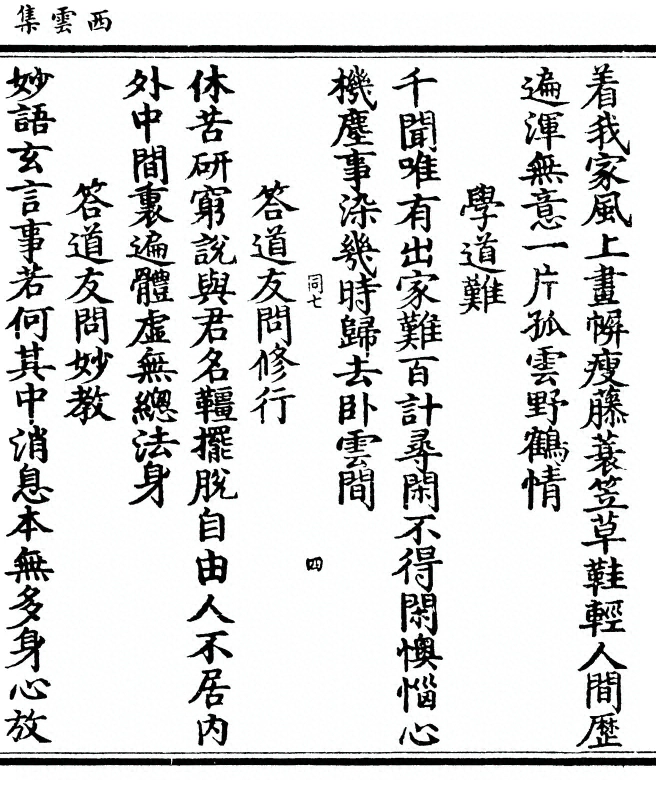 西雲集
着我家風上畫幈瘦藤蓑笠草鞋輕人間歷
遍渾無意一片孤雲野鶴情
學道難
千聞唯有出家難百計尋閑不得閑懊惱心
機塵事染幾時歸去卧雲間
同七
四
答道友問修行
休苦研窮說與君名韁擺脫自由人不居内
外中間裏遍體虛無總法身
答道友問妙教
妙語玄言事若何其中消息本無多身心放